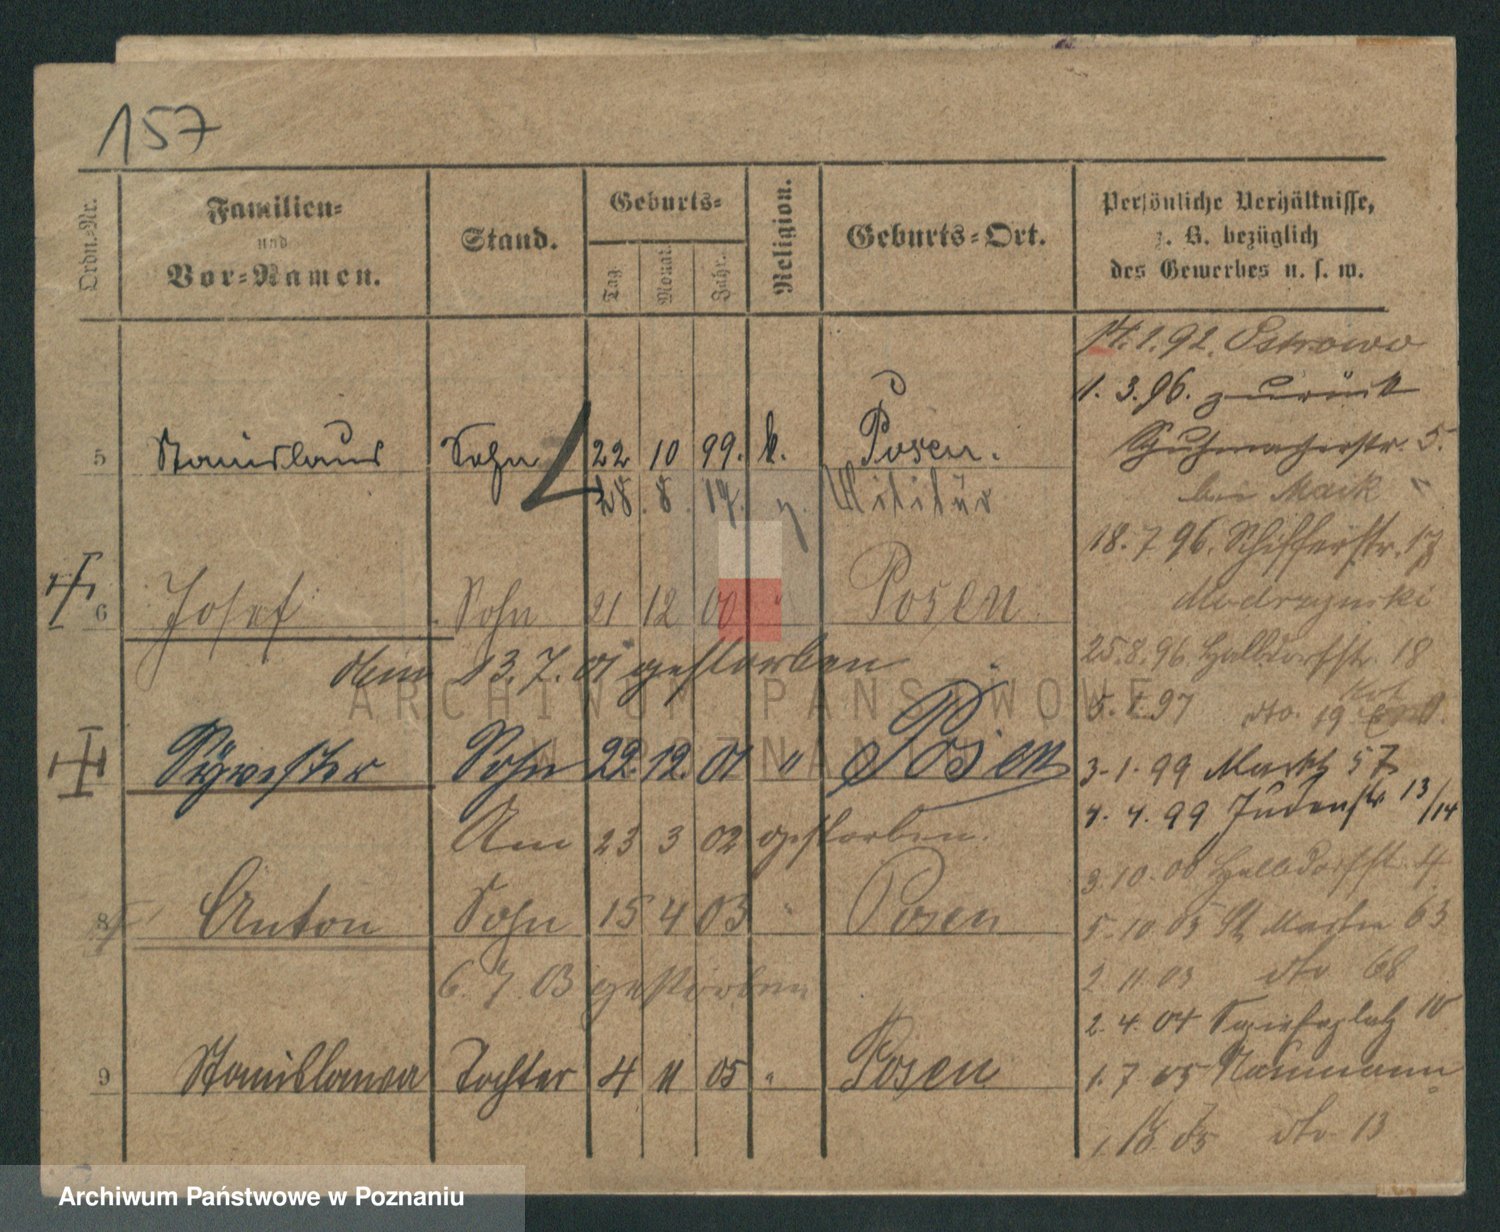 157
Ordn.-Nr.
Familien-
und
Vor-Namen.
Stand.
Geburts-
Tag.
Monat.
Jahr.
Religion.
Geburts-Ort.
Persönliche Verhältnisse,
z. B. bezüglich
des Gewerbes u. s. w.
5 Stanislaus Sohn 22 10 99. k. Posen.
28. 8. 17. n. Militär
6 Josef Sohn 21 12 00 " Posen
13.7.01 gestorben
Sohn 22. 12. 01 " Posen
Am 23 3 02 gestorben.
8 Anton Sohn 15 4 03 " Posen
6. 7. 03 gestorben
9 Stanislawa Tochter 4 11 05 " Posen
14.1.92. Ostrowo
1. 3. 96. zurück
Schuhmacherstr. 5.
bei Mack "
18. 7 96. Schifferstr. 17
25.8.96. Halbdorfstr. 18
97 dto. 19
3. 1. 99 Markt 57
4. 4. 99 Judenstr 13/14
3. 10. 00 Halbdorfstr. 4
5. 10. 03 St Martin 63
2. 11. 03 dto 68
2. 4. 04 Sapiehaplatz 10
1. 7 05 Naumann
dto 13
ARCHIWUM PAŃSTWOWE
W POZNANIU
Archiwum Państwowe w Poznaniu